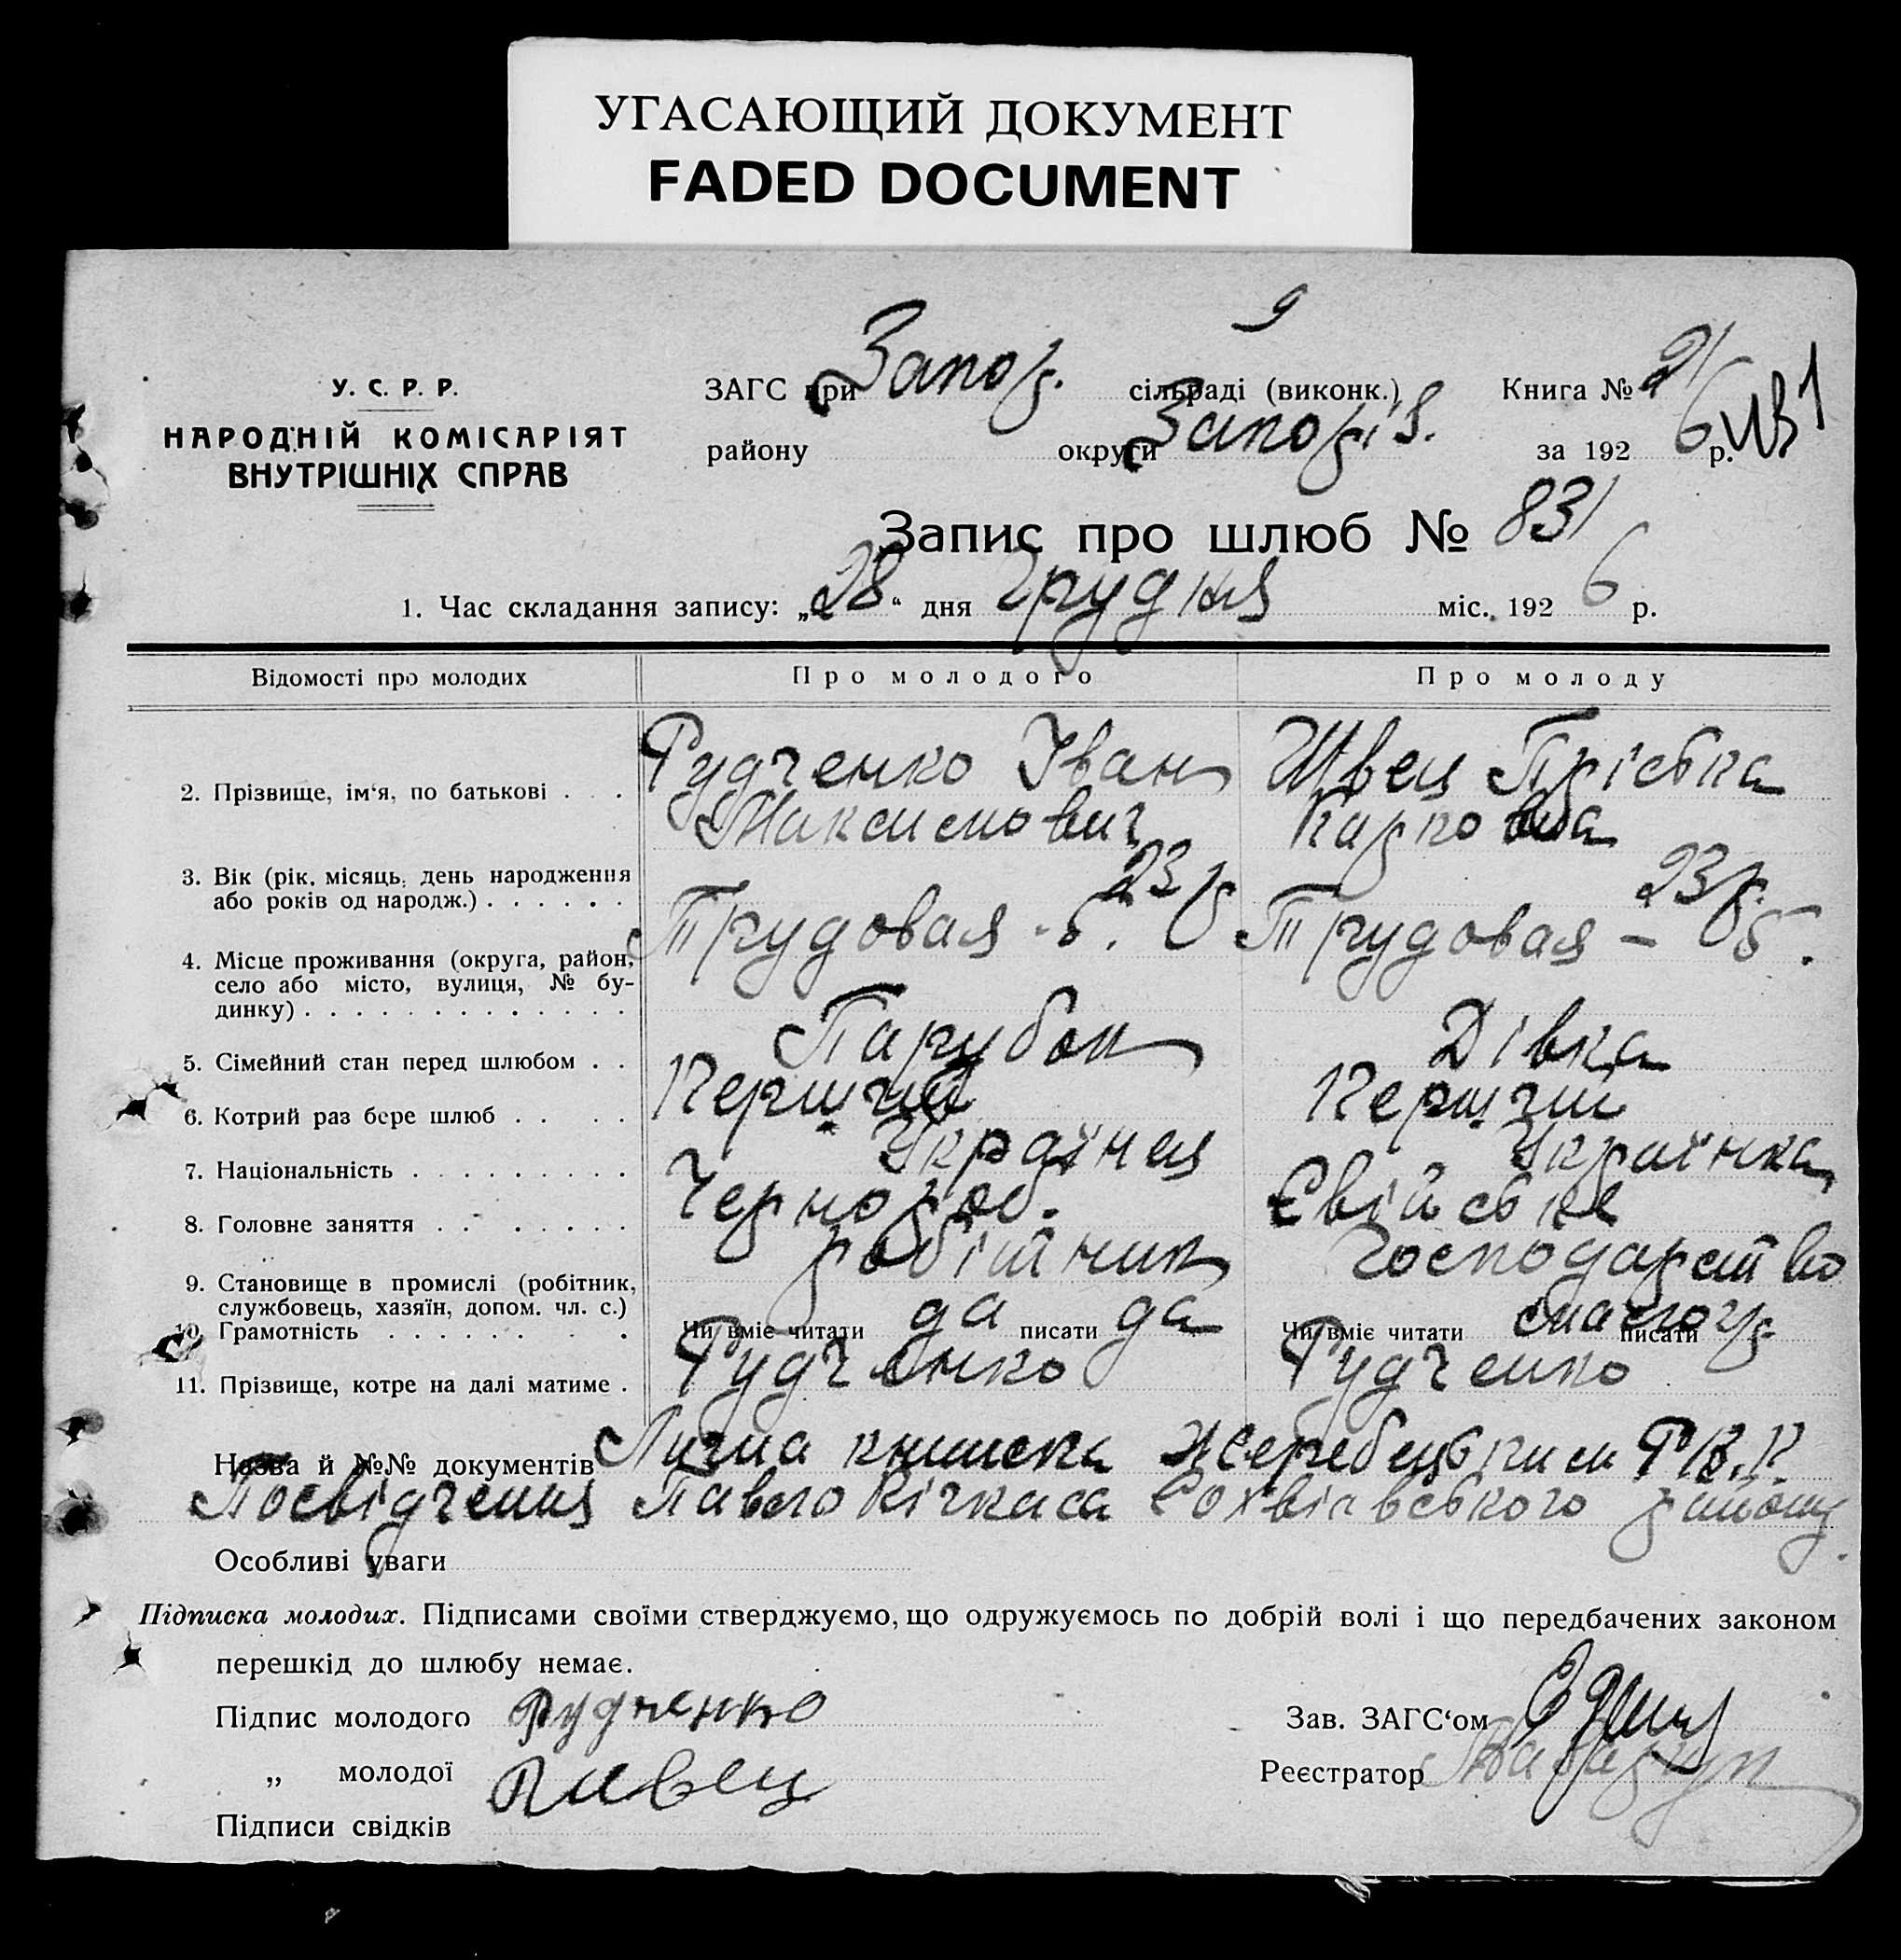 УГАСАЮЩИЙ ДОКУМЕНТ
FADED DOCUMENT
9
У. С. Р. Р.
НАРОДНІЙ КОМІСАРІЯТ
ВНУТРІШНІХ СПРАВ
ЗАГС при Запор. сільраді (виконк.) Книга № 21
району округи Запоріз. за 192 6 р.
Запис про шлюб № 831
1. Час складання запису: „28“ дня Грудня міс. 192 6 р.
Відомості про молодих Про молодого Про молоду
2. Прізвище, ім‘я, по батькові . . . Рудченко Іван Швец Пріська
Максимович Карповна
3. Вік (рік, місяць, день народження 23 р. 23 р.
або років од народж.) . . . . . .
Трудовая 5. Трудовая –
4. Місце проживання (округа, район,
село або місто, вулиця, № бу-
динку) . . . . . . . . . . . . .
5. Сімейний стан перед шлюбом . . Парубок Дівка
6. Котрий раз бере шлюб . . . . Перший Перший
7. Національність . . . . . . . . . Українец Українка
8. Головне заняття . . . . . . . Чернороб. Свійське
робітник господарство
9. Становище в промислі (робітник,
службовець, хазяїн, допом. чл. с.)
10. Грамотність . . . . . . . . Чи вміє читати да писати да Чи вміє читати писати
11. Прізвище, котре на далі матиме . Рудченко Рудченко
Назва й №№ документів Лична книжка Жеребецьким Р.В.К.
Посвідчення Павло Кічкаса Софіевського району.
Особливі уваги
Підписка молодих. Підписами своїми стверджуємо, що одружуємось по добрій волі і що передбачених законом
перешкід до шлюбу немає.
Підпис молодого Рудченко Зав. ЗАГС‘ом
„ молодої Швец Реєстратор
Підписи свідків